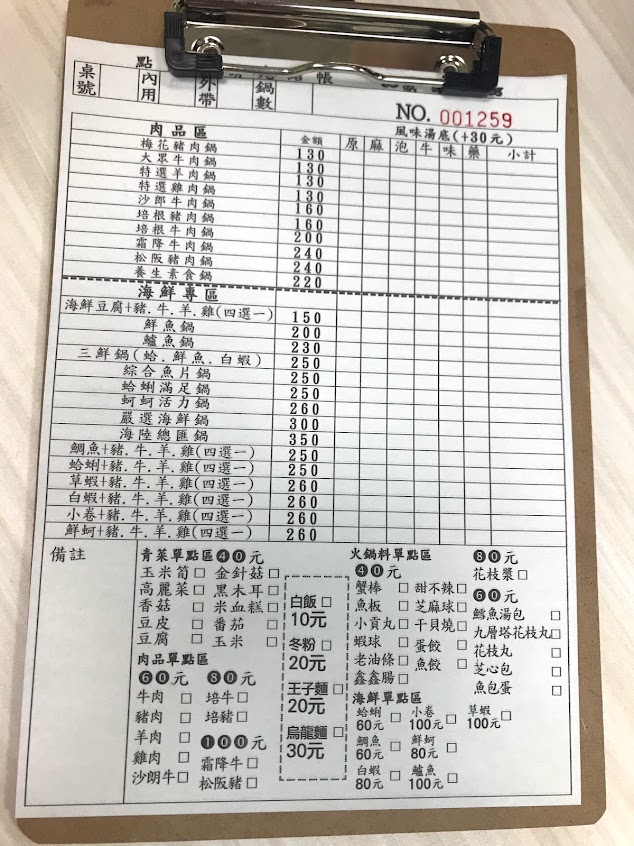 點
帳
桌號
內用
外帶
鍋數
NO. 001259
風味湯底(+30元)
肉品區 金額 原 麻 泡 牛 味 藥 小計
梅花豬肉鍋 130
大眾牛肉鍋 130
特選羊肉鍋 130
特選雞肉鍋 130
沙郎牛肉鍋 160
培根豬肉鍋 160
培根牛肉鍋 200
霜降牛肉鍋 240
松阪豬肉鍋 240
養生素食鍋 220
海鮮專區
海鮮豆腐+豬.牛.羊.雞(四選一) 150
鮮魚鍋 200
鱸魚鍋 230
三鮮鍋(蛤.鮮魚.白蝦) 250
綜合魚片鍋 250
蛤蜊滿足鍋 250
蚵蚵活力鍋 260
嚴選海鮮鍋 300
海陸總匯鍋 350
鯛魚+豬.牛.羊.雞(四選一) 250
蛤蜊+豬.牛.羊.雞(四選一) 250
草蝦+豬.牛.羊.雞(四選一) 260
白蝦+豬.牛.羊.雞(四選一) 260
小卷+豬.牛.羊.雞(四選一) 260
鮮蚵+豬.牛.羊.雞(四選一) 260
備註
青菜單點區40元
玉米筍 金針菇
高麗菜 黑木耳
香菇 米血糕
豆皮 番茄
豆腐 玉米
肉品單點區
60元 80元
牛肉 培牛
豬肉 培豬
羊肉 100元
雞肉 霜降牛
沙朗牛 松阪豬
白飯
10元
冬粉
20元
王子麵
20元
烏龍麵
30元
火鍋料單點區
40元
蟹棒 甜不辣
魚板 芝麻球
小貢丸 干貝燒
蝦球 蛋餃
老油條 魚餃
鑫鑫腸
80元
花枝漿
60元
鱈魚湯包
九層塔花枝丸
花枝丸
芝心包
魚包蛋
海鮮單點區
蛤蜊 小卷 草蝦
60元 100元 100元
鯛魚 鮮蚵
60元 80元
白蝦 鱸魚
80元 100元